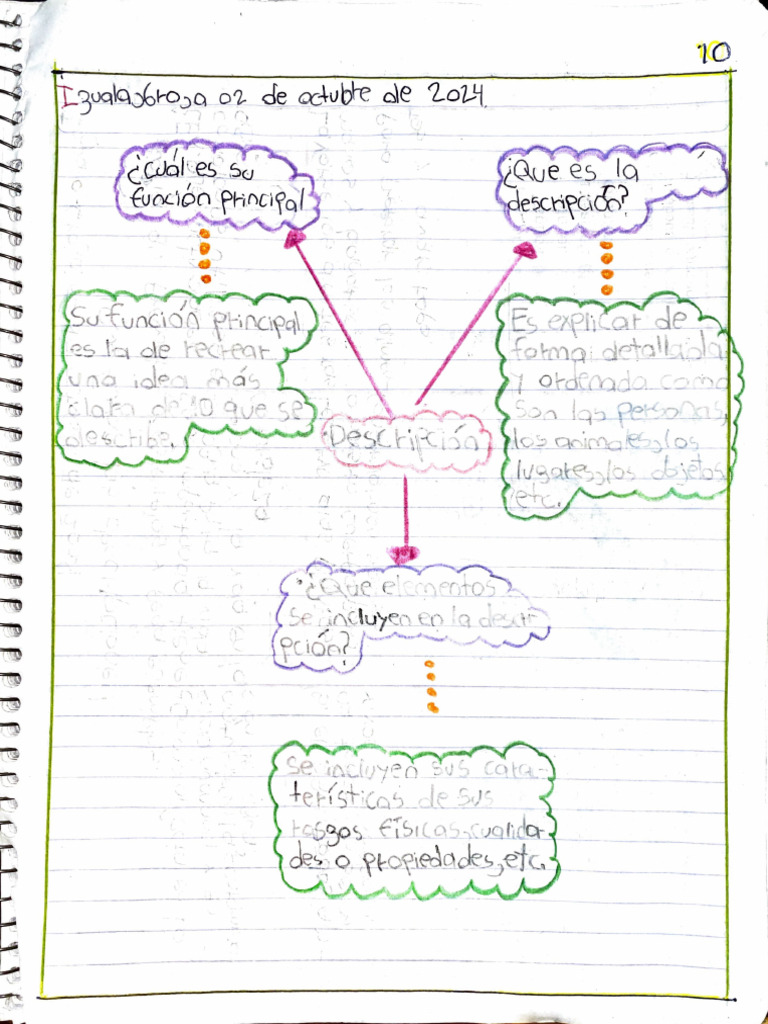 10
Igualas,6ro,a 02 de octubre de 2024.
¿Cuál es su
función principal
¿Que es la
descripción?
Su función principal
es la de recrear
una idea más
clara de lo que se
describe.
Es explicar de
forma detallada
y ordenada como
son las personas,
los animales, los
lugares, los objetos
etc.
Descripción
¿Que elementos
se incluyen en la descri-
pción?
se incluyen sus carac-
terísticas de sus
rasgos físicas, cualida
des o propiedades, etc.